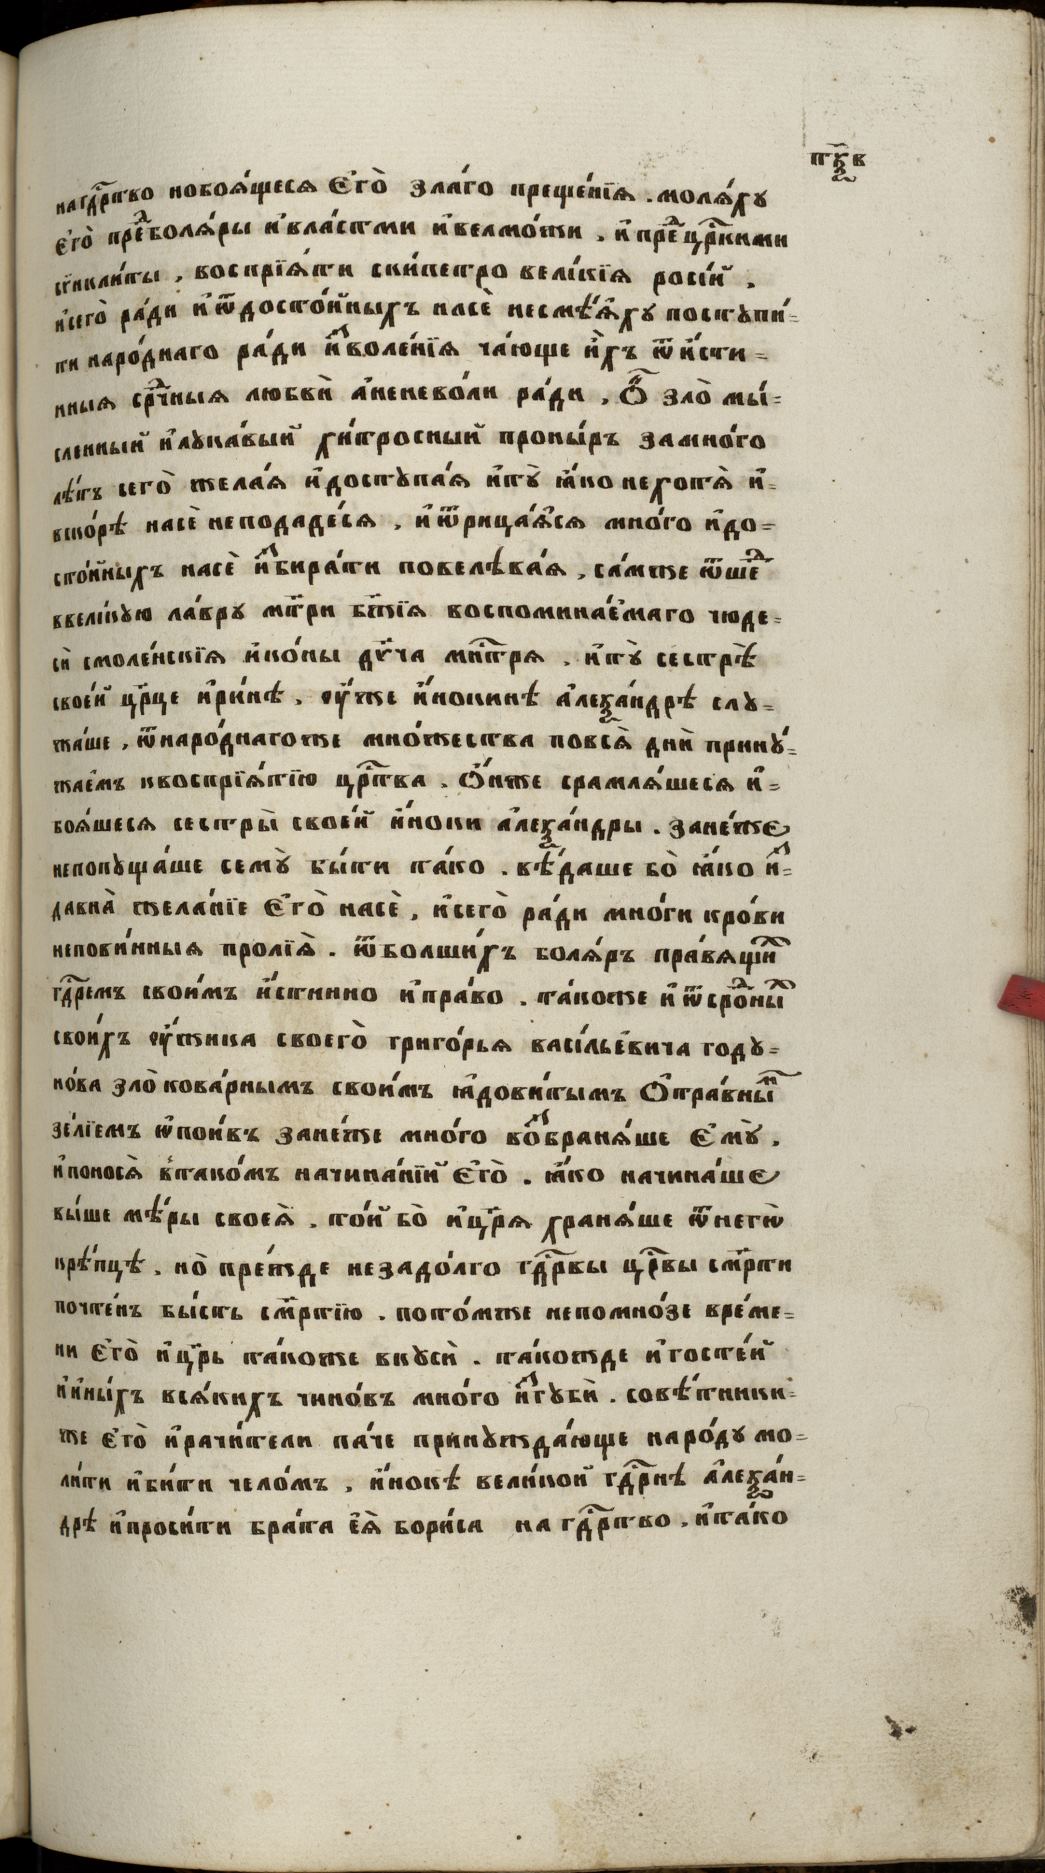 пѯ҃в
нагд҇рⷭтво нобоѧ́щесѧ є҆го̀ зла́го преще́нїѧ . молѧ́хꙋ
є҆го̀ пре́ⷣболѧ́ры и҆вла́стми и҆велмо́жи , и҆пре́ⷣцр҇кими
сѷнкли́ты , воспрїѧ́ти ски́петро вели́кїѧ росі́й ,
и҆сего̀ ра́ди и҆ѿдосто́йныхъ насѐ несмѣ́ѧхꙋ постꙋпи́=
ти наро́днаго ра́ди и҆ꙁволе́нїѧ ча́юще и҆̀хъ ѿ и҆́сти=
нныѧ срⷣчныѧ любвѝ а҆неневоли ра́ди , Ѻ҆́ ꙁло̀ мы́=
сленный и҆лꙋка́вый хи́тросный проны́ръ ꙁамно́го
лѣ́тъ сего̀ жела́ѧ и҆достꙋпа́ѧ и҆тꙋ̀ ꙗ҆́ко нехотѧ̀ и҆=
вско́рѣ насѐ неподаде́сѧ , и҆ѿрица́ѧсѧ мно́го и҆до=
сто́йныхъ насѐ и҆ꙁбира́ти повелѣва́ѧ , са́мже ѿшеⷣ
ввели́кꙋю ла́врꙋ мт҃ри бж҃їѧ воспомина́емаго чюде=
сѝ смоле́нскїѧ и҆ко́ны дв҃ча мнⷭ҇трѧ , и҆тꙋ̀ сестрѣ̀
свое́й цр҃це и҆ри́нѣ , ᲂу҆́же и҆́нокинѣ а҆леѯа́ндрѣ слꙋ=
жа́ше , ѿнаро́днагоже мно́жества повсѧ̀ днѝ принꙋ́=
жаемъ квоспрїѧ́тїю црⷭ҇тва . Ѻ҆́нже срамлѧ́шесѧ и҆=
боѧ́шесѧ сестры̀ свое́й и҆́ноки а҆леѯа́ндры . ꙁане́же
непопꙋща́ше семꙋ̀ бы́ти та́ко . вѣ́даше бо̀ ꙗ҆́ко и҆ꙁ=
давна̀ жела́нїе є҆го̀ насѐ , и҆сего̀ ра́ди мно́ги кро́ви
непови́нныѧ пролїѧ̀ . ѿболши́хъ болѧ́ръ пра́вѧщиⷯ
гдⷭ҇ремъ свои́мъ и҆́стинно и҆пра́во . та́коже и҆ѿсро́ⷣныⷯ
свои́хъ ᲂу҆́жика своего̀ григо́рьѧ васи́льевича годꙋ=
но́ва ꙁло̀кова́рнымъ свои́мъ ꙗ҆дови́тымъ Ѻ҆тра́вныⷨ
ꙁе́лїемъ ѡ҆пои́въ ꙁане́же мно́го во́ꙁбранѧ́ше є҆мꙋ̀ ,
и҆поносѧ̀ втако́мъ начина́нїй є҆го̀ . ꙗ҆́ко начина́ше
вы́ше мѣ́ры своеѧ̀ . то́й бо̀ и҆цр҃ѧ хранѧ́ше ѿнегѡ̀
крѣ́пцѣ . но̀ пре́жде неꙁадо́лго гдⷭ҇рвы црⷭ҇вы см҃рти
почте́нъ бы́сть см҃ртїю . пото́мже непомно́ꙁе вре́ме=
ни є҆го̀ и҆цр҃ь та́коже вкꙋсѝ . та́кожде и҆госте́й
и҆и҆ны́хъ всѧ́кихъ чино́въ мно́го и҆ꙁгꙋбѝ . совѣ́тники=
же є҆го̀ и҆рачи́тели па́че принꙋжда́юще наро́дꙋ мо=
ли́ти и҆би́ти чело́мъ , и҆́нокѣ вели́кой гдⷭ҇рнѣ а҆леѯа́н=
дрѣ и҆проси́ти бра́та є҆ѧ̀ бори́са на гдⷭ҇ртво . и҆та́ко